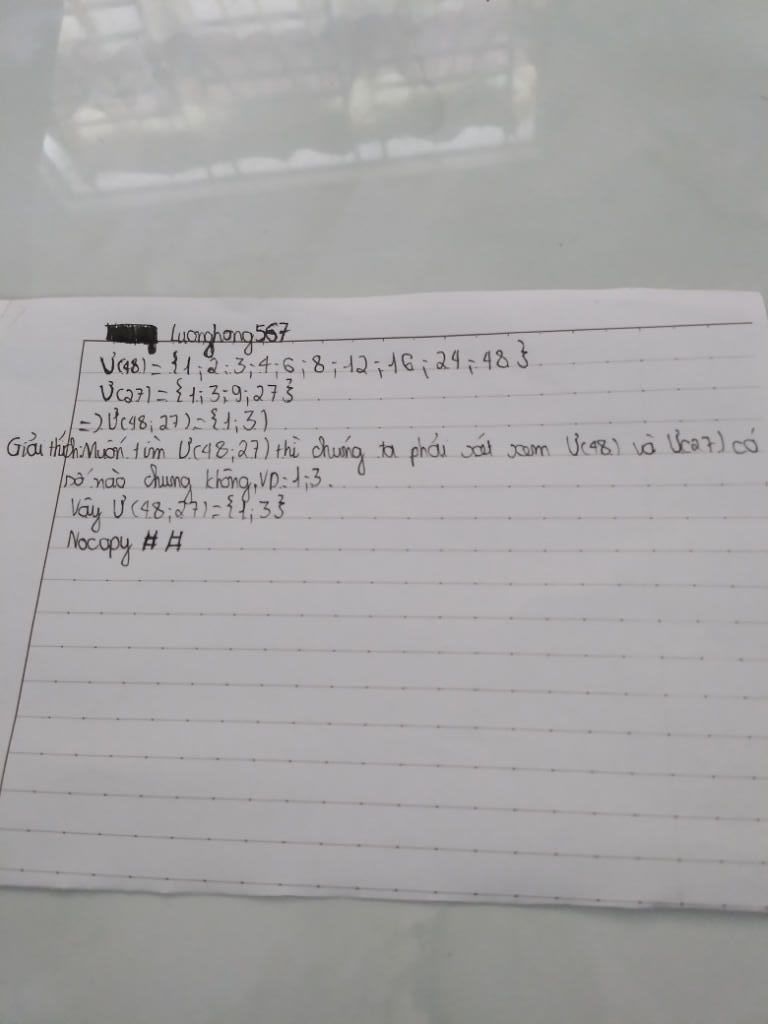 Luonghong567
Ư(48)={1;2;3;4;6;8;12;16;24;48}
Ư(27)={1;3;9;27}
=)Ư(48;27)={1;3)
Giải thích:Muốn tìm Ư(48;27) thì chúng ta phải xát xem Ư(48) và Ư(27) có
số nào chung không,VD:1;3.
Vậy Ư(48;27)={1;3}
Nocopy # #